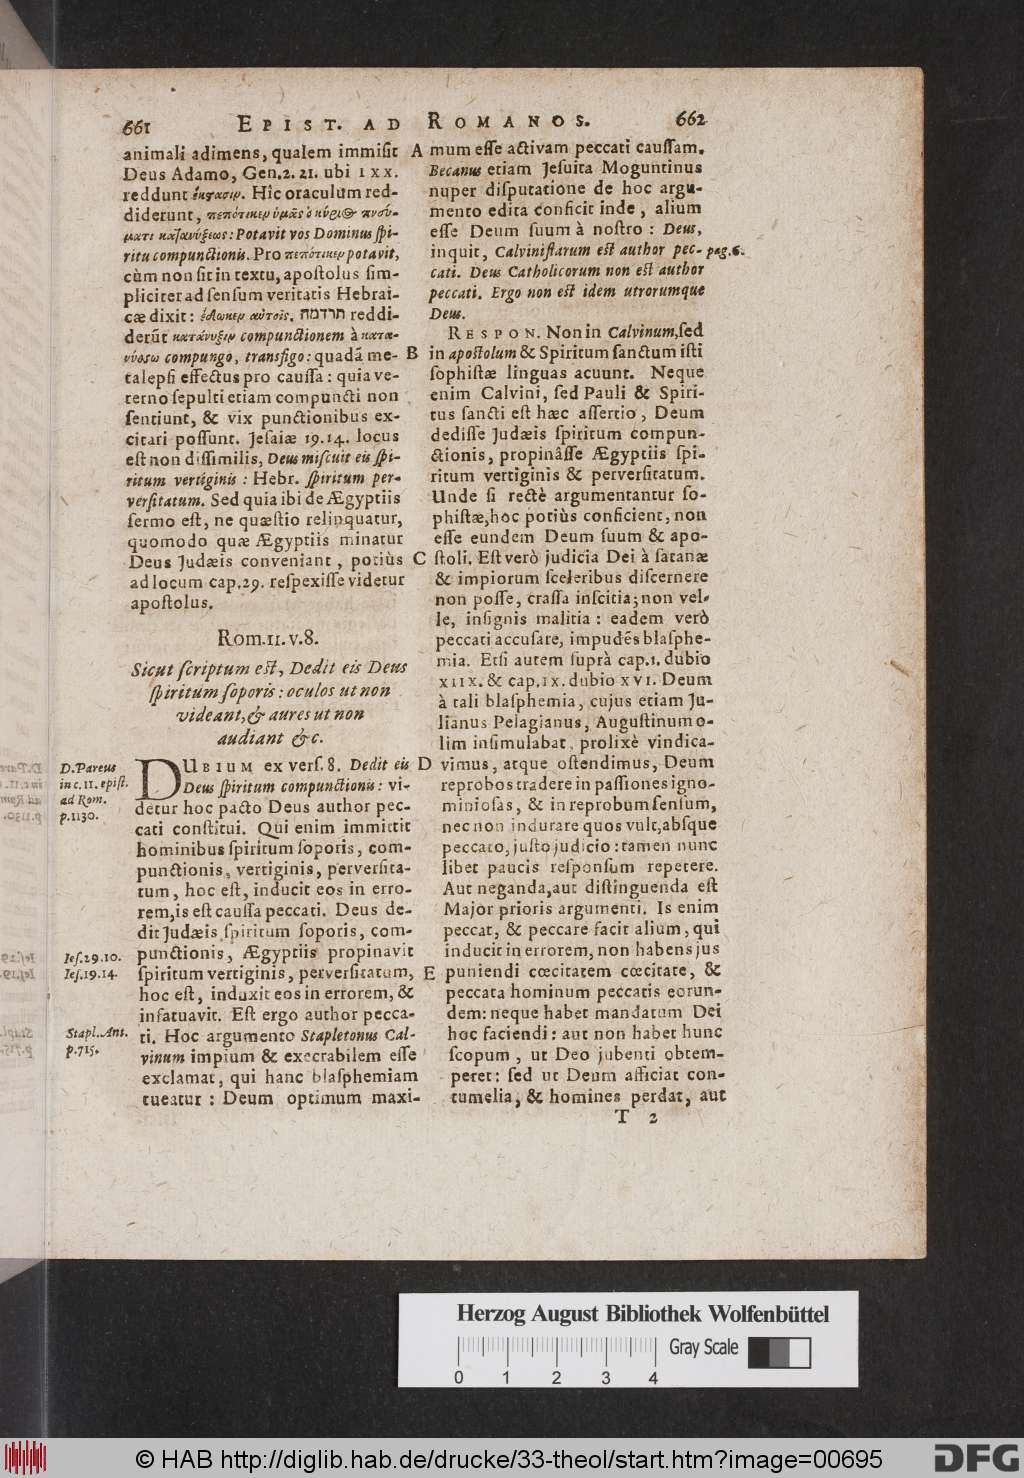 661
EPIST. AD ROMANOS.
662
animali adimens, qualem immisit
Deus Adamo, Gen. 2. 21. ubi IXX.
reddunt ἔκστασιν. Hîc oraculum red-
diderunt, πεπότικεν ὑμᾶς ὁ κύριος πνεύ-
ματι κατανύξεως: Potavit vos Dominus ſpi-
ritu compunctionis. Pro πεπότικεν potavit,
cùm non ſit in textu, apoſtolus ſim-
pliciter ad ſenſum veritatis Hebrai-
cæ dixit: ἔδωκεν αὐτοῖς. תרדמה reddi-
derũt κατάνυξιν compunctionem à κατα-
νύσσω compungo, transfigo: quadã me-
talepſi effectus pro cauſſa: quia ve-
terno ſepulti etiam compuncti non
ſentiunt, & vix punctionibus ex-
citari poſſunt. Jeſaiæ 19. 14. locus
eſt non diſſimilis, Deus miſcuit eis ſpi-
ritum vertiginis: Hebr. ſpiritum per-
verſitatum. Sed quia ibi de Ægyptiis
ſermo eſt, ne quæſtio relinquatur,
quomodo quæ Ægyptiis minatur
Deus Judæis conveniant, potiùs
ad locum cap. 29. reſpexiſſe videtur
apoſtolus.
Rom. 11. v. 8.
Sicut ſcriptum eſt, Dedit eis Deus
ſpiritum ſoporis: oculos ut non
videant, & aures ut non
audiant &c.
D. Pareus
in c. 11. epiſt.
ad Rom.
p. 1130.
DUBIUM ex verſ. 8. Dedit eis
Deus ſpiritum compunctionis: vi-
detur hoc pacto Deus author pec-
cati conſtitui. Qui enim immittit
hominibus ſpiritum ſoporis, com-
punctionis, vertiginis, perverſita-
tum, hoc eſt, inducit eos in erro-
rem, is eſt cauſſa peccati. Deus de-
dit Judæis ſpiritum ſoporis, com-
punctionis, Ægyptiis propinavit
ſpiritum vertiginis, perverſitatum,
hoc eſt, induxit eos in errorem, &
infatuavit. Eſt ergo author pecca-
ti. Hoc argumento Stapletonus Cal-
vinum impium & execrabilem eſſe
exclamat, qui hanc blaſphemiam
tueatur: Deum optimum maxi-
Ieſ. 29. 10.
Ieſ. 19. 14.
Stapl. Ant.
p. 715.
A
B
C
D
E
mum eſſe activam peccati cauſſam.
Becanus etiam Jeſuita Moguntinus
nuper diſputatione de hoc argu-
mento edita conficit inde, alium
eſſe Deum ſuum à noſtro: Deus,
inquit, Calviniſtarum eſt author pec-
cati. Deus Catholicorum non eſt author
peccati. Ergo non eſt idem utrorumque
Deus.
pag. 6.
RESPON. Non in Calvinum, ſed
in apoſtolum & Spiritum ſanctum iſti
ſophiſtæ linguas acuunt. Neque
enim Calvini, ſed Pauli & Spiri-
tus ſancti eſt hæc aſſertio, Deum
dediſſe Judæis ſpiritum compun-
ctionis, propinâſſe Ægyptiis ſpi-
ritum vertiginis & perverſitatum.
Unde ſi rectè argumentantur ſo-
phiſtæ, hoc potiùs conficient, non
eſſe eundem Deum ſuum & apo-
ſtoli. Eſt verò judicia Dei à ſatanæ
& impiorum ſceleribus diſcernere
non poſſe, craſſa inſcitia; non vel-
le, inſignis malitia: eadem verò
peccati accuſare, impudẽs blaſphe-
mia. Etſi autem ſuprà cap. 1. dubio
XIIX. & cap. IX. dubio XVI. Deum
à tali blaſphemia, cujus etiam Ju-
lianus Pelagianus, Auguſtinum o-
lim inſimulabat, prolixè vindica-
vimus, atque oſtendimus, Deum
reprobos tradere in paſſiones igno-
minioſas, & in reprobum ſenſum,
nec non indurare quos vult, abſque
peccato, juſto judicio: tamen nunc
libet paucis reſponſum repetere.
Aut neganda, aut diſtinguenda eſt
Major prioris argumenti. Is enim
peccat, & peccare facit alium, qui
inducit in errorem, non habens jus
puniendi cœcitatem cœcitate, &
peccata hominum peccatis eorun-
dem: neque habet mandatum Dei
hoc faciendi: aut non habet hunc
ſcopum, ut Deo jubenti obtem-
peret: ſed ut Deum afficiat con-
tumelia, & homines perdat, aut
T 2
Herzog August Bibliothek Wolfenbüttel
Gray Scale
0 1 2 3 4
© HAB http://diglib.hab.de/drucke/33-theol/start.htm?image=00695
DFG